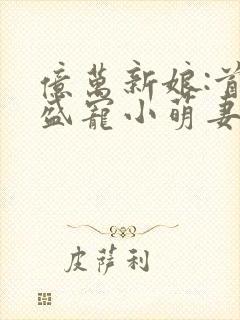 億萬新娘:首
盛寵小萌妻
皮薩利